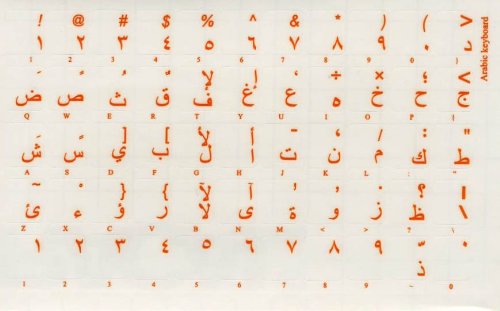 ! @ # $ % ^ & * ) ( >
١ ٢ ٣ ٤ ٥ ٦ ٧ ٨ ٩ ٠
1 2 3 4 5 6 7 8 9 0 }
Arabic keyboard
َ ً ُ ٌ لإ إ ‘ ÷ × ؛ <
ض ص ث ق ف غ ع ه خ ح ج
Q W E R T Y U I O P {
ِ ٍ ] [ لأ أ ـ ، / : "
ش س ي ب ل ا ت ن م ك ط
A S D F G H J K L :
~ ْ } { لآ آ ’ , . ؟ |
ئ ء ؤ ر لا ى ة و ز ظ \
Z X C V B N M < > ? \
١ ٢ ٣ ٤ ٥ ٦ ٧ ٨ ٩ ّ ٠
ذ
1 2 3 4 5 6 7 8 9 ~ 0